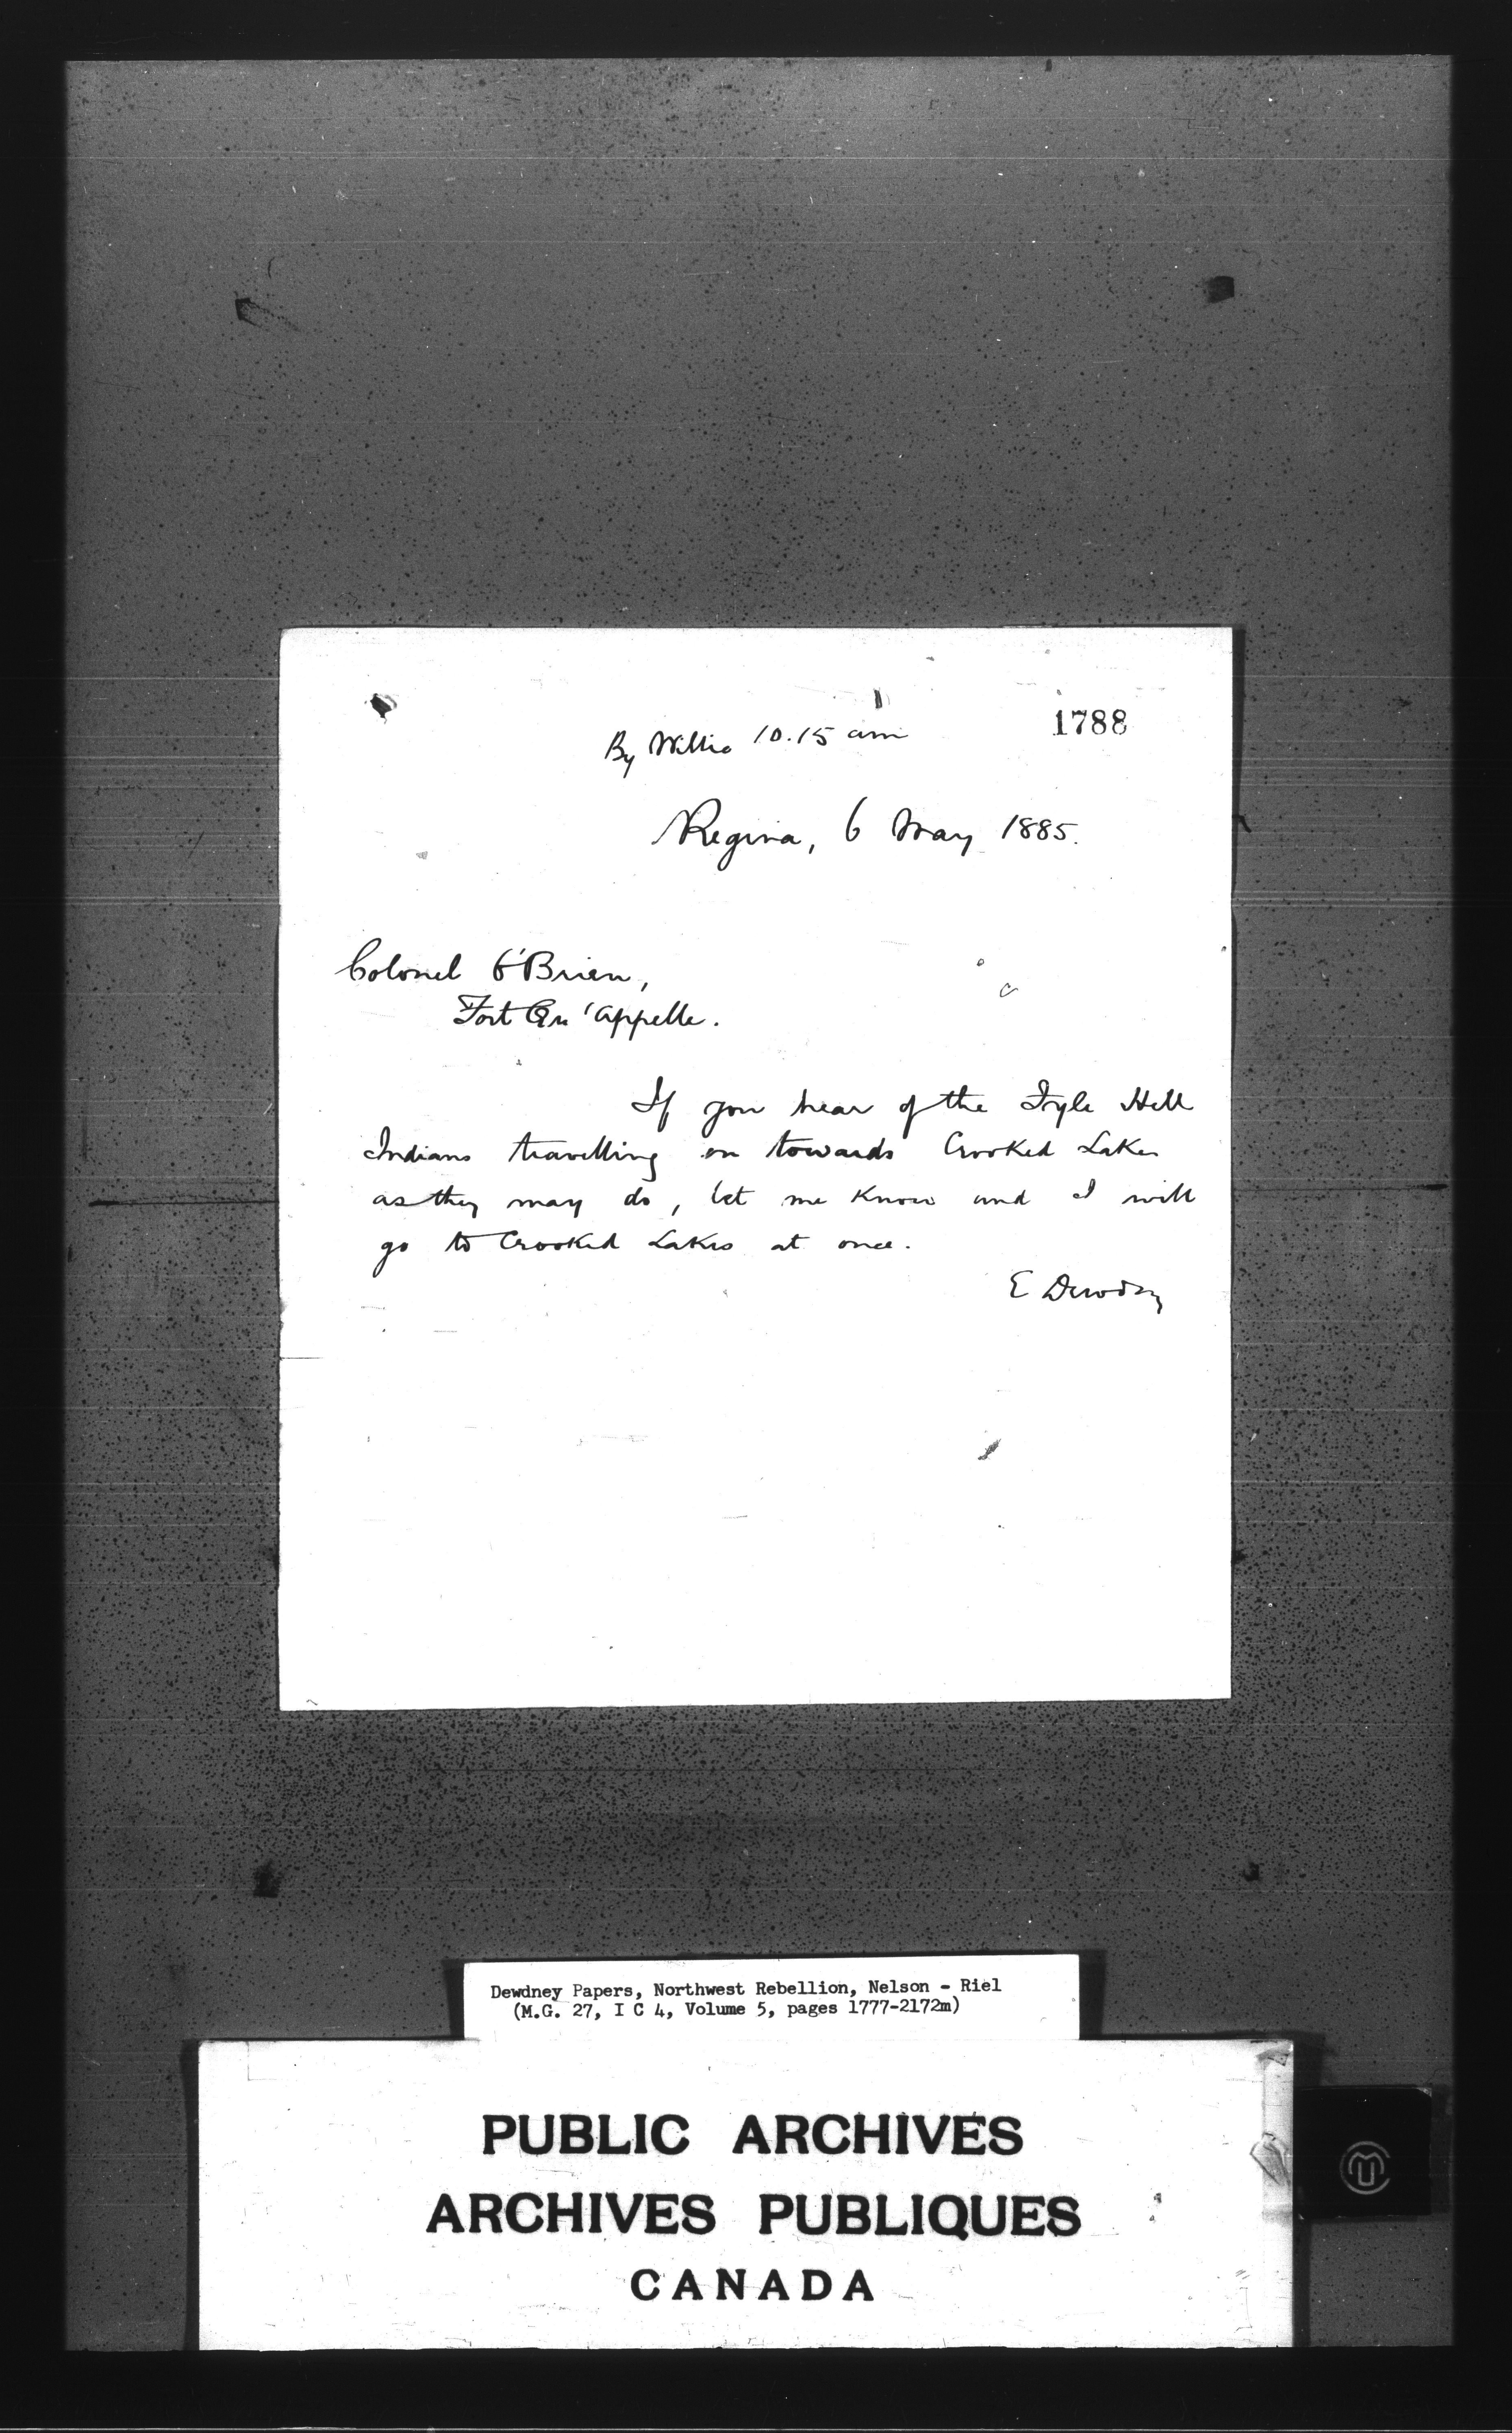 By Willis 10.15 am
1788
Regina, 6 May 1885.
Colonel O'Brien,
Fort Qu'Appelle.
If you hear of the File Hill
Indians travelling on towards Crooked Lakes
as they may do, let me know and I will
go to Crooked Lakes at once.
E Dewdney
Dewdney Papers, Northwest Rebellion, Nelson - Riel
(M.G. 27, I C 4, Volume 5, pages 1777-2172m)
PUBLIC ARCHIVES
ARCHIVES PUBLIQUES
CANADA